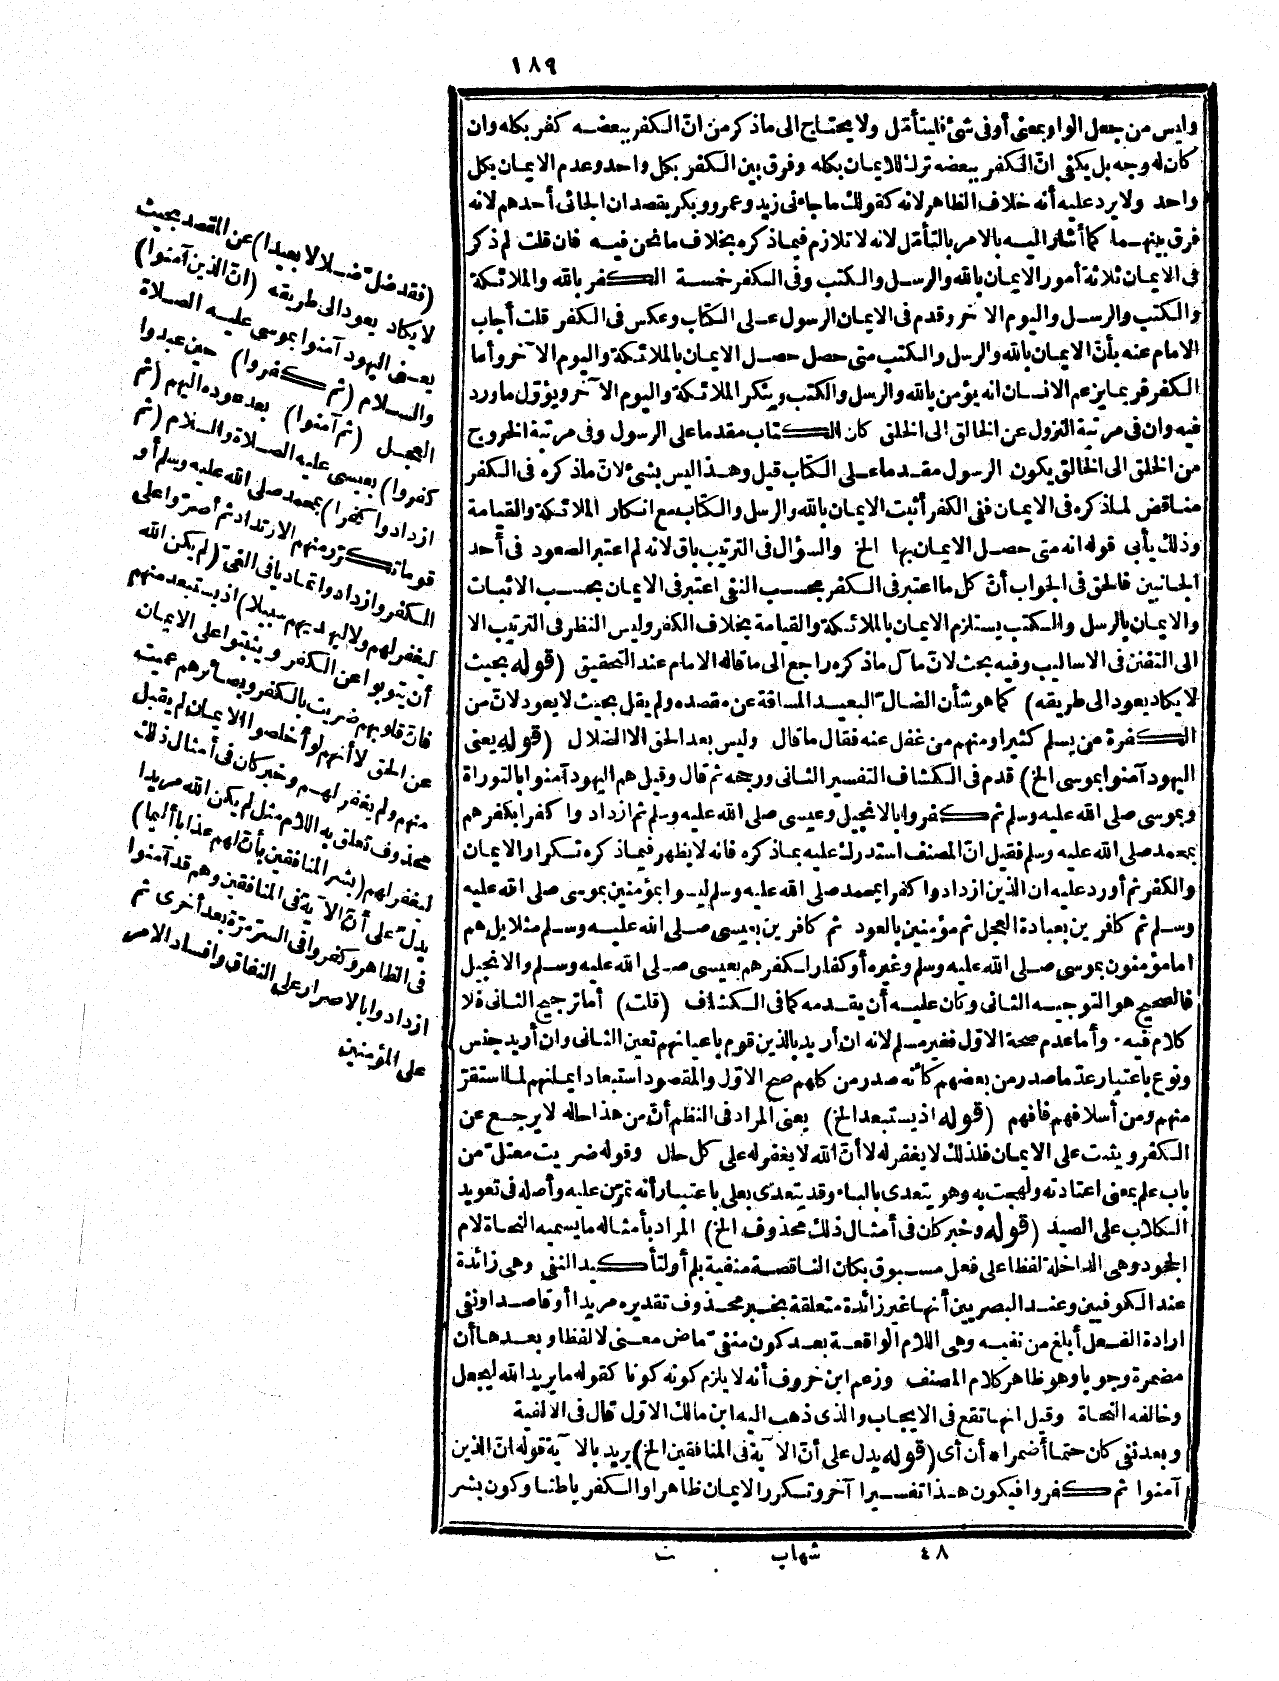 ١٨٩
وليس من جعل الواو بمعنى أو فى شئ فليتأمل ولا يحتاج الى ما ذكر من انّ الكفر ببعضه كفر بكله وان
كان له وجه بل يكفى انّ الكفر ببعضه ترك للايمان بكله وفرق بين الكفر بكل واحد وعدم الايمان بكل
واحد ولا يرد عليه أنه خلاف الظاهر لانه كقولك ما جاءنى زيد وعمرو وبكر بقصد ان الجائى أحدهم لانه
فرق بينهما كما أشار اليه بالامر بالتأمّل لانه لا تلازم فيما ذكره بخلاف ما نحن فيه فان قلت لم ذكر
فى الايمان ثلاثة أمور الايمان بالله والرسل والكتب وفى الكفر خمسة الكفر بالله والملائكة
والكتب والرسل واليوم الآخر وقدم فى الايمان الرسول على الكتاب وعكس فى الكفر قلت أجاب
الامام عنه بأنّ الايمان بالله والرسل والكتب متى حصل حصل الايمان بالملائكة واليوم الآخر وأما
الكفر فربما يزعم الانسان انه يؤمن بالله والرسل والكتب وينكر الملائكة واليوم الآخر ويؤوّل ما ورد
فيه وان فى مرتبة النزول عن الخالق الى الخلق كان الكتاب مقدما على الرسول وفى مرتبة الخروج
من الخلق الى الخالق يكون الرسول مقدما على الكتاب قيل وهذا ليس بشئ لانّ ما ذكره فى الكفر
مناقض لما ذكره فى الايمان ففى الكفر أثبت الايمان بالله والرسل والكتاب مع انكار الملائكة والقيامة
وذلك يأبى قوله انه متى حصل الايمان بها الخ والسؤال فى الترتيب باق لانه لم اعتبر الصعود فى أحد
الجانبين فالحق فى الجواب أنّ كل ما اعتبر فى الكفر بحسب النفى اعتبر فى الايمان بحسب الاثبات
والايمان بالرسل والكتب يستلزم الايمان بالملائكة والقيامة بخلاف الكفر وليس النظر فى الترتيب الا
الى التفنن فى الاساليب وفيه بحث لانّ مآل ما ذكره راجع الى ما قاله الامام عند التحقيق (قوله بحيث
لا يكاد يعود الى طريقه) كما هو شأن الضالّ البعيد المسافة عن مقصده ولم يقل بحيث لا يعود لانّ من
الكفرة من يسلم كثيرا ومنهم من غفل عنه فقال ما قال وليس بعد الحق الا الضلال (قوله يعنى
اليهود آمنوا بموسى الخ) قدم فى الكشاف التفسير الثانى ورجحه ثم قال وقيل هم اليهود آمنوا بالتوراة
وبموسى صلى الله عليه وسلم ثم كفروا بالانجيل وعيسى صلى الله عليه وسلم ثم ازدادوا كفرا بكفرهم
بمحمد صلى الله عليه وسلم فقيل انّ المصنف استدرك عليه بما ذكره فانه لا يظهر فيما ذكره تكرار الايمان
والكفر ثم أورد عليه ان الذين ازدادوا كفرا بمحمد صلى الله عليه وسلم ليسوا بمؤمنين بموسى صلى الله عليه
وسلم ثم كافرين بعبادة العجل ثم مؤمنين بالعود ثم كافرين بعيسى صلى الله عليه وسلم مثلا بل هم
اما مؤمنون بموسى صلى الله عليه وسلم وغيره أو كفار لكفرهم بعيسى صلى الله عليه وسلم والانجيل
فالصحيح هو التوجيه الثانى وكان عليه أن يقدمه كما فى الكشاف (قلت) أما ترجيح الثانى فلا
كلام فيه وأما عدم صحة الاوّل فغير مسلم لانه ان أريد بالذين قوم باعيانهم تعين الثانى وان أريد جنس
ونوع باعتبار عدّ ما صدر من بعضهم كأنه صدر من كلهم صح الاوّل والمقصود استبعاد ايمانهم لما استقرّ
منهم ومن أسلافهم فافهم (قوله اذ يستبعد الخ) يعنى المراد فى النظم أنّ من هذا حاله لا يرجع عن
الكفر ويثبت على الايمان فلذلك لا يغفر له لا أنّ الله لا يغفر له على كل حال وقوله ضريت معتلّ من
باب علم بمعنى اعتادته ولهجت به وهو يتعدى بالباء وقد يتعدّى بعلى باعتبار أنه تمرّن عليه وأصله فى تعويد
الكلاب على الصيد (قوله وخبر كان فى أمثال ذلك محذوف الخ) المراد بأمثاله ما يسميه النحاة لام
الجحود وهى الداخلة لفظا على فعل مسبوق بكان الناقصة منفية بلم أو لتأكيد النفى وهى زائدة
عند الكوفيين وعند البصريين أنها غير زائدة متعلقة بخبر محذوف تقديره مريدا أو قاصدا ونفى
ارادة الفعل أبلغ من نفيه وهى اللام الواقعة بعد كون منفىّ ماض معنى لا لفظا وبعدها أن
مضمرة وجوبا وهو ظاهر كلام المصنف وزعم ابن خروف أنه لا يلزم كونه كونا كقوله ما يريد الله ليجعل
وخالفه النحاة وقيل انها تقع فى الايجاب والذى ذهب اليه ابن مالك الاوّل قال فى الالفية
وبعد نفى كان حتما أضمرا * أن أى (قوله يدل على أنّ الآية فى المنافقين الخ) يريد بالآية قوله انّ الذين
آمنوا ثم كفروا فيكون هذا تفسيرا آخر وتكرر الايمان ظاهرا والكفر باطنا وكون بشر
٤٨ شهاب ث
(فقد ضلّ ضلالا بعيدا) عن المقصد بحيث
لا يكاد يعود الى طريقه (انّ الذين آمنوا)
يعنى اليهود آمنوا بموسى عليه الصلاة
والسلام (ثم كفروا) حين عبدوا
العجل (ثم آمنوا) بعد عوده اليهم (ثم
كفروا) بعيسى عليه الصلاة والسلام (ثم
ازدادوا كفرا) بمحمد صلى الله عليه وسلم أو
قوما تكرّر منهم الارتداد ثم أصرّوا على
الكفر وازدادوا تماديا فى الغىّ (لم يكن الله
ليغفر لهم ولا ليهديهم سبيلا) اذ يستبعد منهم
أن يتوبوا عن الكفر ويثبتوا على الايمان
فانّ قلوبهم ضريت بالكفر وبصائرهم عميت
عن الحق لا أنهم لو أخلصوا الايمان لم يقبل
منهم ولم يغفر لهم وخبر كان فى أمثال ذلك
محذوف تعلق به اللام مثل لم يكن الله مريدا
ليغفر لهم (بشر المنافقين بأنّ لهم عذابا أليما)
يدلّ على أنّ الآية فى المنافقين وهم قد آمنوا
فى الظاهر وكفروا فى السرّ مرّة بعد أخرى ثم
ازدادوا بالاصرار على النفاق وافساد الامر
على المؤمنين